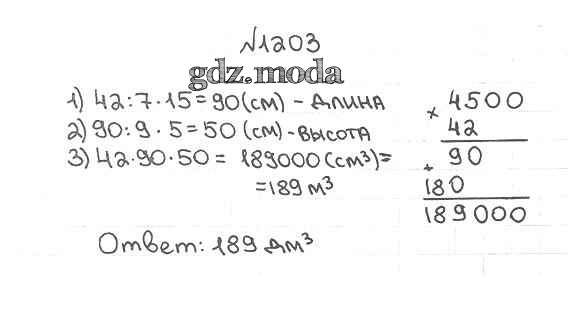 №1203
gdz.moda
1) 42:7·15=90(см) - длина
2) 90:9·5=50 (см)-высота
3) 42·90·50= 189000(см³)=
=189 м³
× 4500
42
+ 90
180
189000
Ответ: 189 дм³